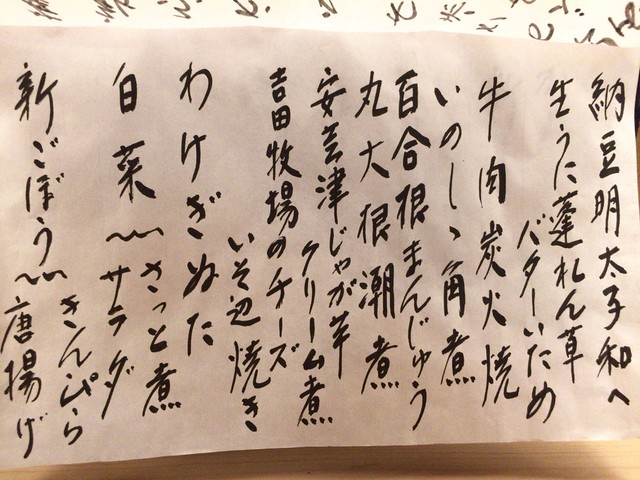 納豆明太子和へ
生うに蓬れん草
バターいため
牛肉炭火焼
いのしゝ角煮
百合根まんじゅう
丸大根潮煮
安芸津じゃが芋
クリーム煮
吉田牧場のチーズ
いそ辺焼き
わけぎぬた
白菜〜さっと煮
サラダ
新ごぼう〜きんぴら
唐揚げ